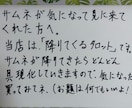 サムネが気になって見に来て
くれた方へ。
当店は、「降りてくるタロット」です。
サムネが降りてきたらどんどん
具現化していきますので、気になったら
覗いてみて下さい（お題は何でもいいよ）